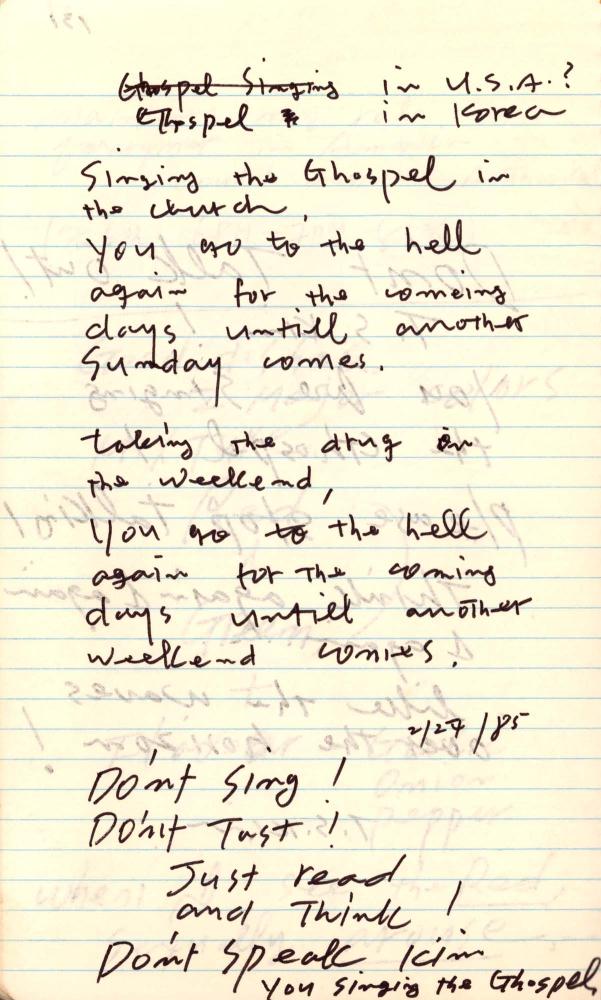 Ghospel Singing in U.S.A.?
Ghospel in Korea
Singing the Ghospel in
the church,
you go to the hell
again for the comeing
days untill another
Sunday comes.
taking the drug in
the weekend,
you go to the hell
again for the coming
days untill another
weekend comes.
2/27/85
Don't Sing!
Don't Tast!
Just read
and Think!
Don't Speak Kim
You singing the Ghospel